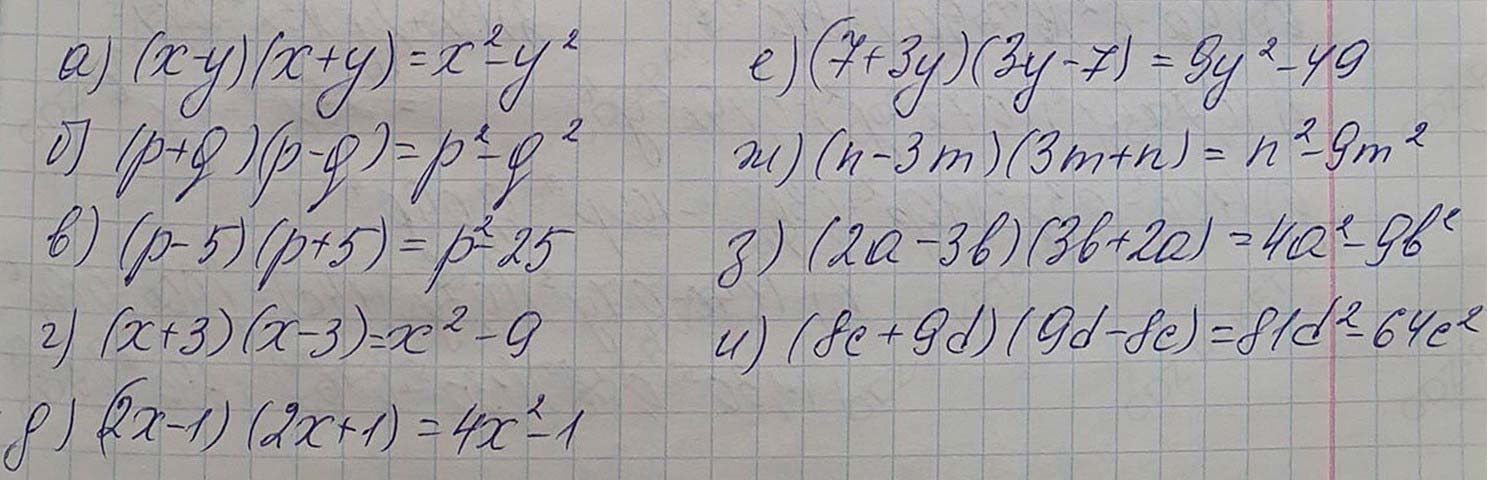 а) (x-y)(x+y)=x²-y²
б) (p+q)(p-q)=p²-q²
в) (p-5)(p+5)=p²-25
г) (x+3)(x-3)=x²-9
д) (2x-1)(2x+1)=4x²-1
е) (7+3y)(3y-7)=9y²-49
ж) (n-3m)(3m+n)=n²-9m²
з) (2a-3b)(3b+2a)=4a²-9b²
и) (8c+9d)(9d-8c)=81d²-64c²